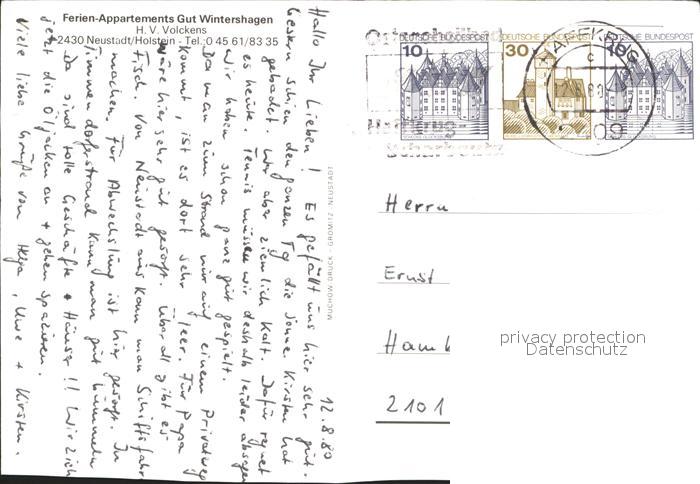 Ferien-Appartements Gut Wintershagen
H. V. Volckens
2430 Neustadt/Holstein - Tel.: 0 45 61/83 35
12.8.80
Hallo Ihr Lieben! Es gefällt uns hier sehr gut.
Gestern schien den ganzen Tag die Sonne. Kirsten hat
gebadet. War aber ziemlich kalt. Dafür regnet
es heute. Tennis müssen wir deshalb leider absagen
Wir haben schon ganz gut gespielt.
Da man zum Strand nur auf einem Privatweg
kommt, ist es dort sehr leer. Für Papa
wäre hier sehr gut gesorgt. Überall gibt es
Fisch. Von Neustadt aus kann man Schiffsfahr
machen. Für Abwechslung ist hier gesorgt. In
Timmendorferstrand kann man gut bummeln
Da sind tolle Geschäfte + Häuser!! Wir zieh
jetzt die Öljacken an + gehen spazieren.
Viele liebe Grüße von Helga, Uwe + Kirsten.
DEUTSCHE BUNDESPOST
10
DEUTSCHE BUNDESPOST
30
DEUTSCHE BUNDESPOST
10
Herrn
Ernst
Hamb
2101
privacy protection
Datenschutz